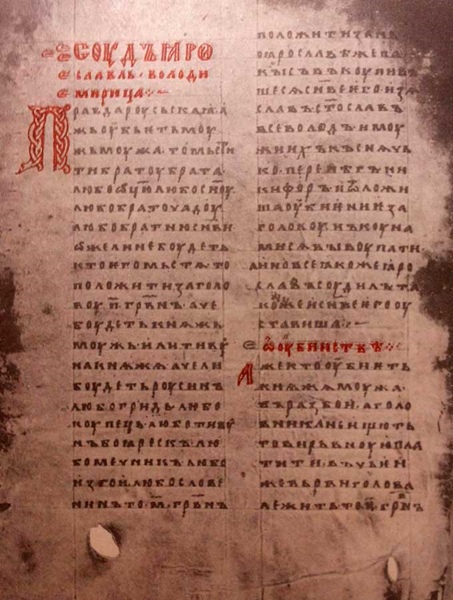 СОУДЪ ꙖРО
СЛАВЛЬ ВОЛОДИ
МИРИЦА
Правда роуськаꙗ а
жь оубьѥть моу
жь моужа то мьстити
ти братоу брата
любо ѡцю любо сноу
любо братоу чадоу
любо братню сынови
кто и го мьстѧ то
положити за голо
воу п҃ грвнъ аче
боудеть кнѧжь
моужь или тивоу
на кнѧжа аче ли
боудеть роусинъ
любо гридь любо
коупець любо тивоу
нъ боѧрескъ лю
бо мечникъ любо
изгои любо слове
нинъ то м҃ грвнъ
положити за нь
по ꙗрославѣ же па
кы съвъкоупивъ
шесѧ сн҃ве ѥго изѧ
славъ ст҃ославъ
всеволодъ и моу
жи ихъ
ко перенѣгъ ни
кифоръ и ѡложи
ша оубиѥниѥ за
головоу нъ коуна
ми сѧ выкоупати
а ино все ꙗкоже ꙗро
славъ соудилъ та
коже и сн҃ве ѥго оу
ставиша
ѡ оубииствѣ
Аже кто оубиѥть
кнѧжа моужа
въ разбои а голо
вника не ищють
то вирьвноую пла
тити въ чьѥи
же вьрви голова
лежить то п҃ грвнъ